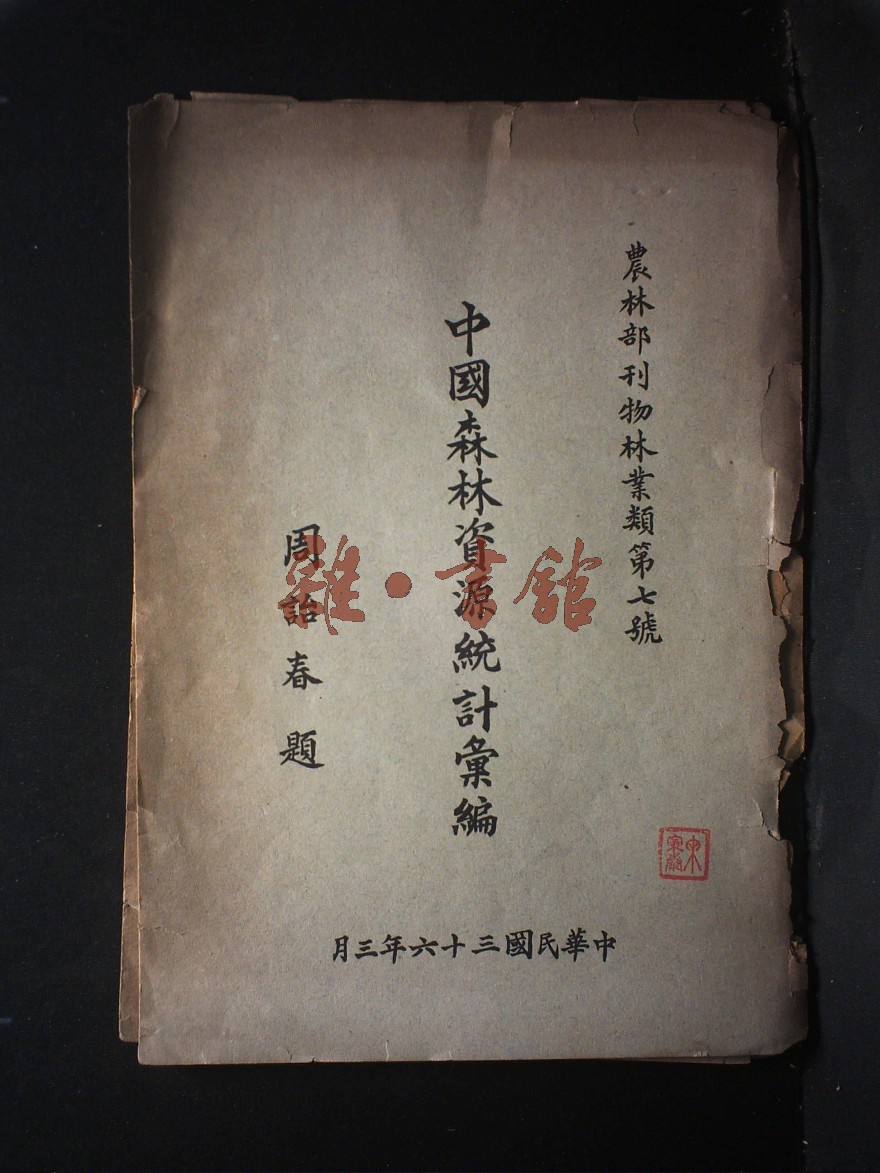 農林部刊物林業類第七號
中國森林資源統計彙編
周詒春題
中華民國三十六年三月
雜·書館